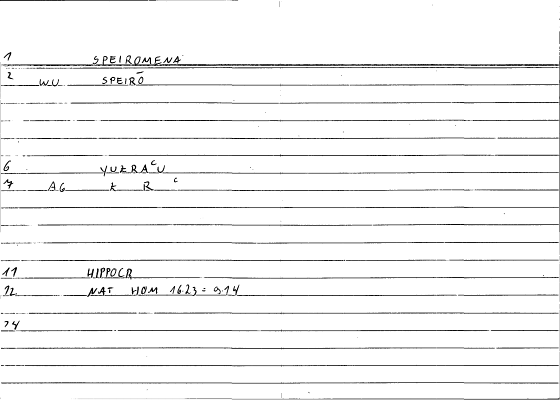 1 SPEIROMENA
2 WU SPEIRŌ
6
7 AG R c
11 HIPPOCR
12 NAT HOM 1623 = 9.14
24